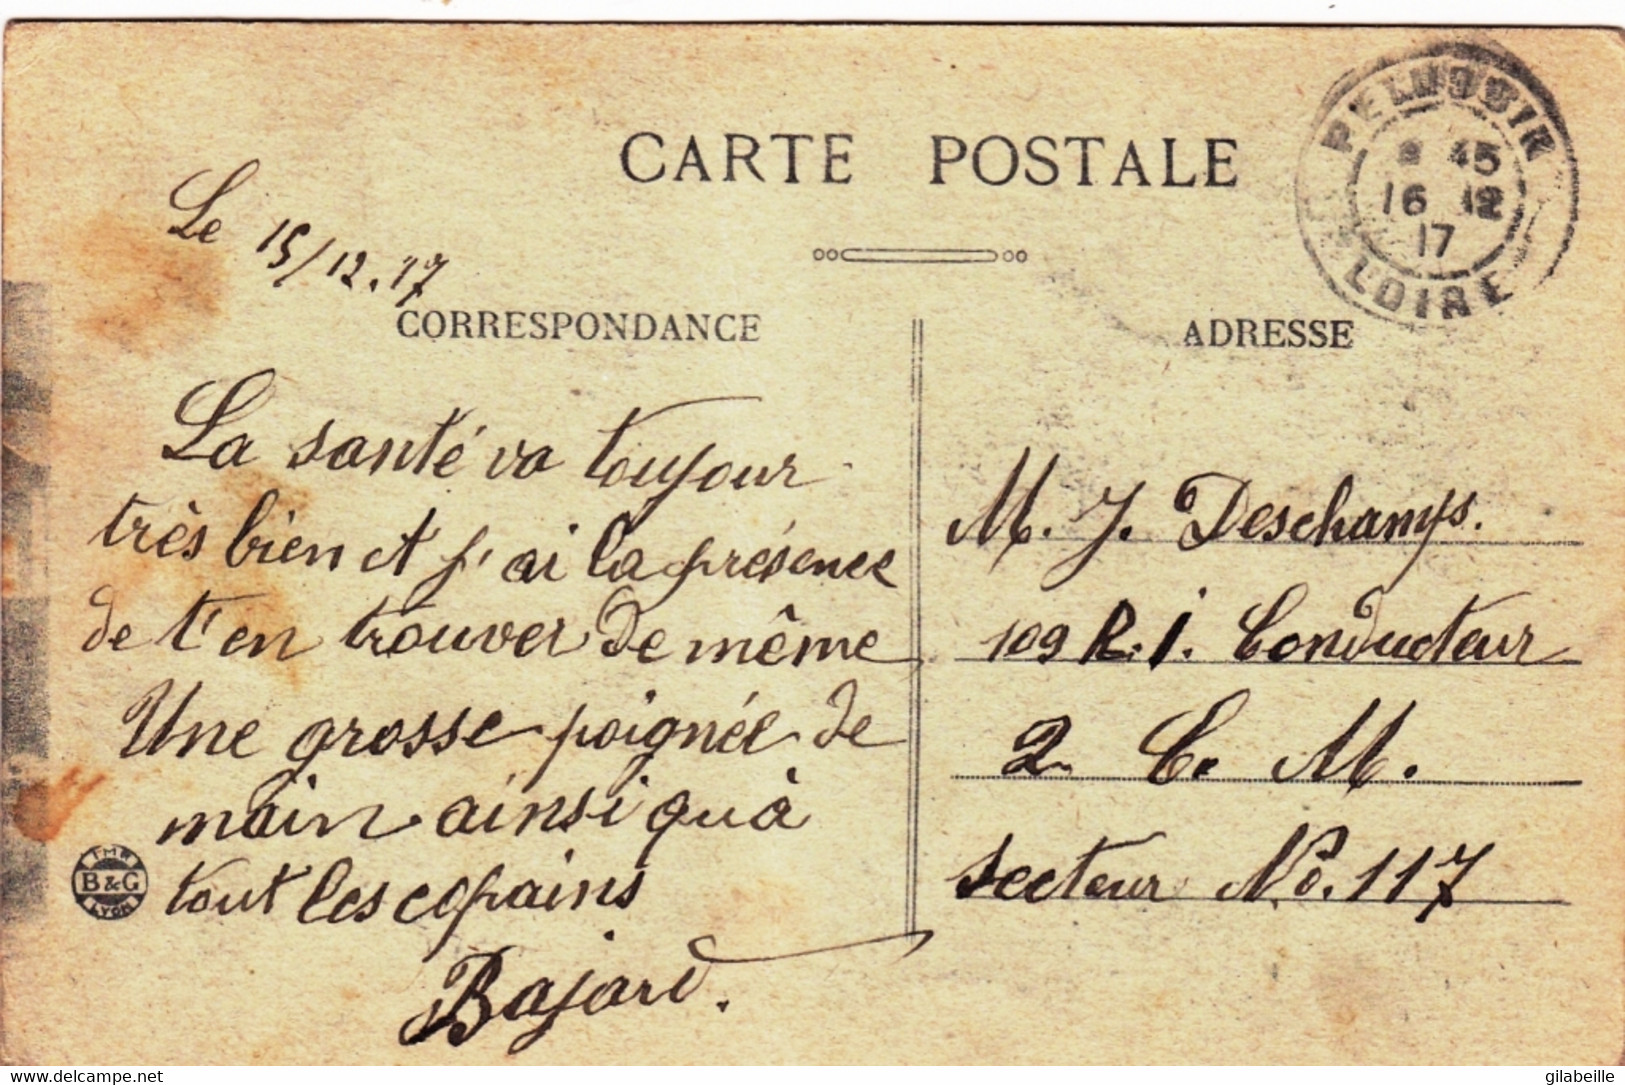 CARTE POSTALE
PELUSSIN
8 45
16 12
17
LOIRE
Le 15/12.17
CORRESPONDANCE
La santé va toujour
très bien et j'ai la présence
de t'en trouver de même
Une grosse poignée de
main ainsi qu'à
tout les copains
Bajard.
IMP
B&G
LYON
ADRESSE
M. J. Deschamps.
109 R.I. Conducteur
2 C. M.
secteur No. 117
www.delcampe.net
gilabeille